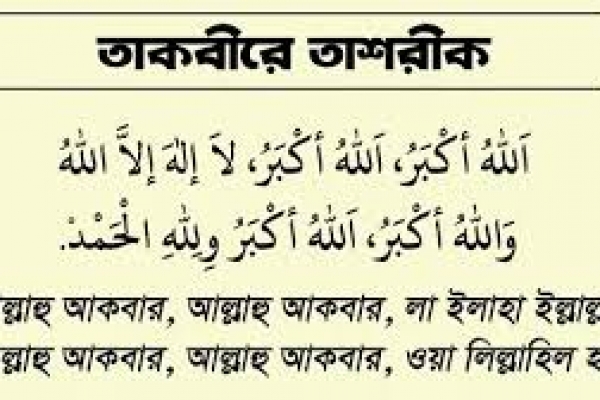 তাকবীরে তাশরীক
اَللهُ أَكْبَرُ، اَللهُ أَكْبَرُ، لاَ إِلٰهَ إِلاَّ اللهُ
وَاللهُ أَكْبَرُ، اَللهُ أَكْبَرُ وَلِلهِ الْحَمْدُ.
ল্লাহু আকবার, আল্লাহু আকবার, লা ইলাহা ইল্লাল্
ল্লাহু আকবার, আল্লাহু আকবার, ওয়া লিল্লাহিল হ